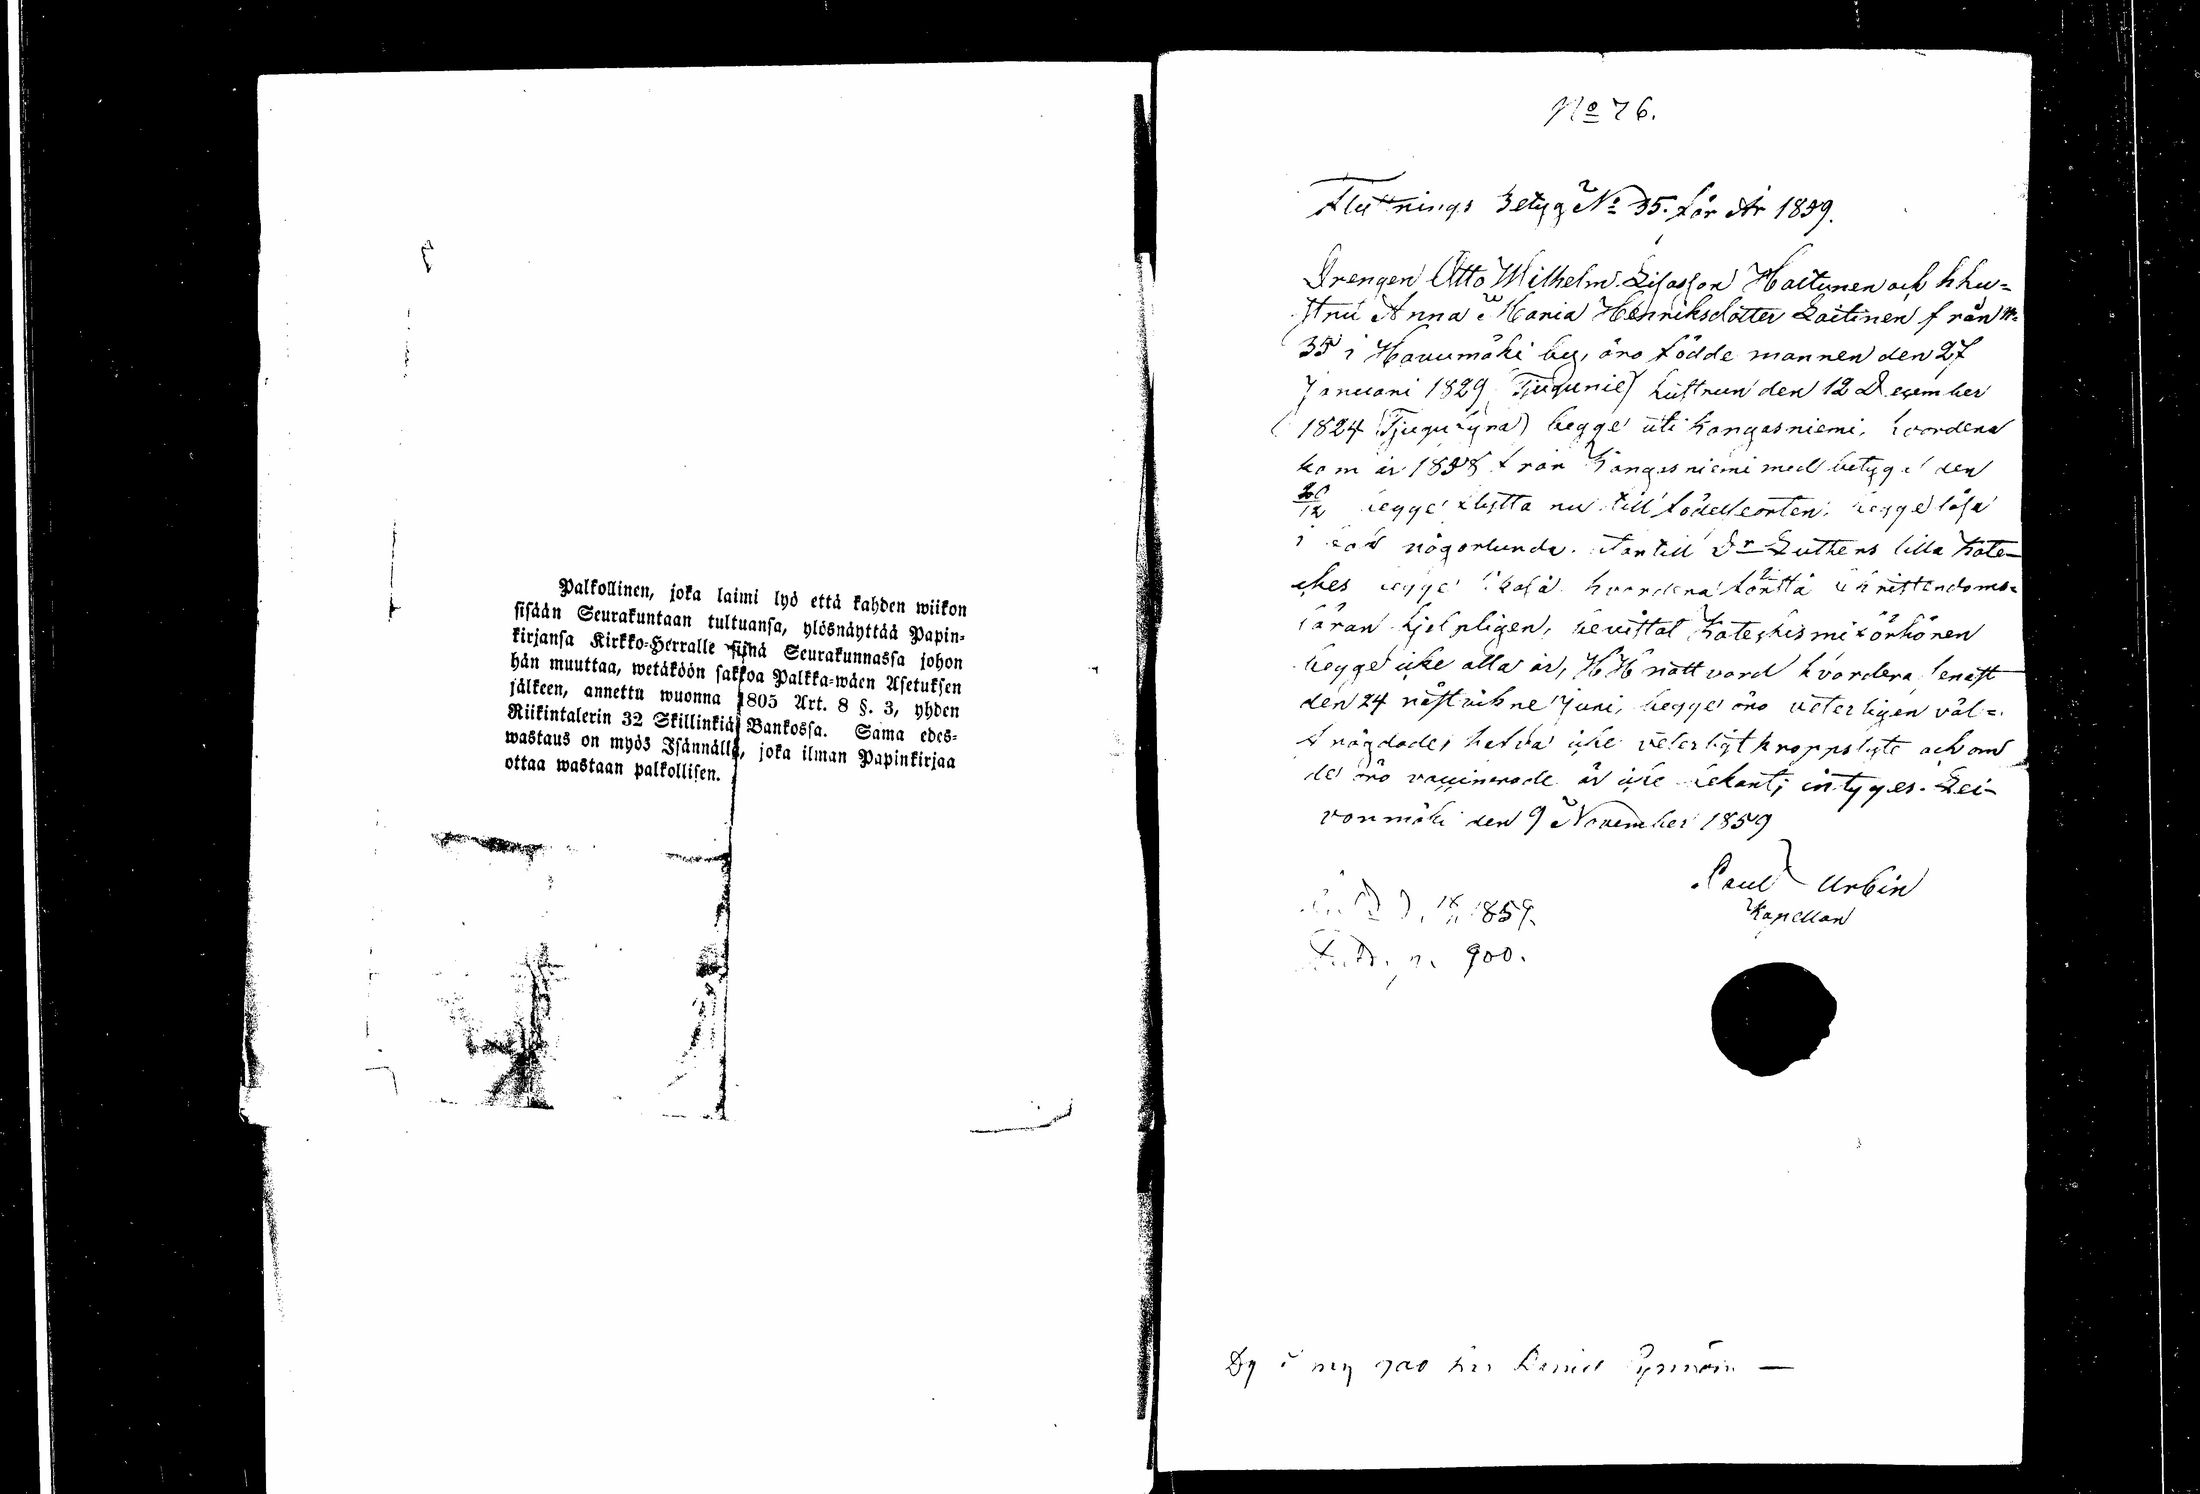 Palkollinen, joka laimi lyö että kahden wiikon
sisään Seurakuntaan tultuansa, ylösnäyttää Papin-
kirjansa Kirkko-Herralle siinä Seurakunnassa johon
hän muuttaa, wetäköön sakkoa Palkka-wäen Asetuksen
jälkeen, annettu wuonna 1805 Art. 8 §. 3, yhden
Riikintalerin 32 Skillinkiä Bankossa. Sama edes-
wastaus on myös Isännällä, joka ilman Papinkirjaa
ottaa wastaan palkollisen.
No 76.
Flyttnings Betyg No 35. för År 1859.
Drengen Otto Wilhelm Hoitunen och hhu-
stru Anna Maria Henriksdotter Laitinen från No
35 i Havumäki by, äro födde mannen den 27
Januari 1829 (Tjugunie) hustrun den 12 December
1824 (Tjugufyra) begge uti Kangasniemi, hvardera
kom år 1858 från Kangasniemi med betyg den
begge flytta nu till födelseorten; begge läsa
i bok någorlunda. Dr Luthers lilla Kate-
ches begge hvardera förstå Christendoms-
läran hjelpligen, bevistat Kateshismi förhören
begge icke alla år, HH nattvard hvardera senast
den 24 nästvikne Juni, begge äro veterligen väl-
frägdade, hafva icke veterligt kroppslyte och om
de äro vaccinerade är icke bekant; intyges. Lei-
vonmäki den 9 November 1859
Paul Urbin
Kapellan
1859.
p. 900.